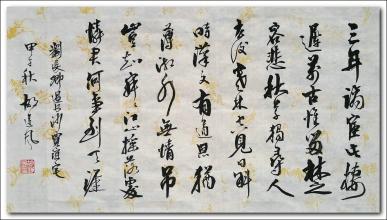 三年謫宦此棲
遲萬古惟留楚
客悲秋草獨尋人
去後寒林空見日斜
時漢文有道恩猶
薄湘水無情吊
豈知寂寂江山搖落處
憐君何事到天涯
劉長卿過長沙賈誼宅
甲子秋 胡